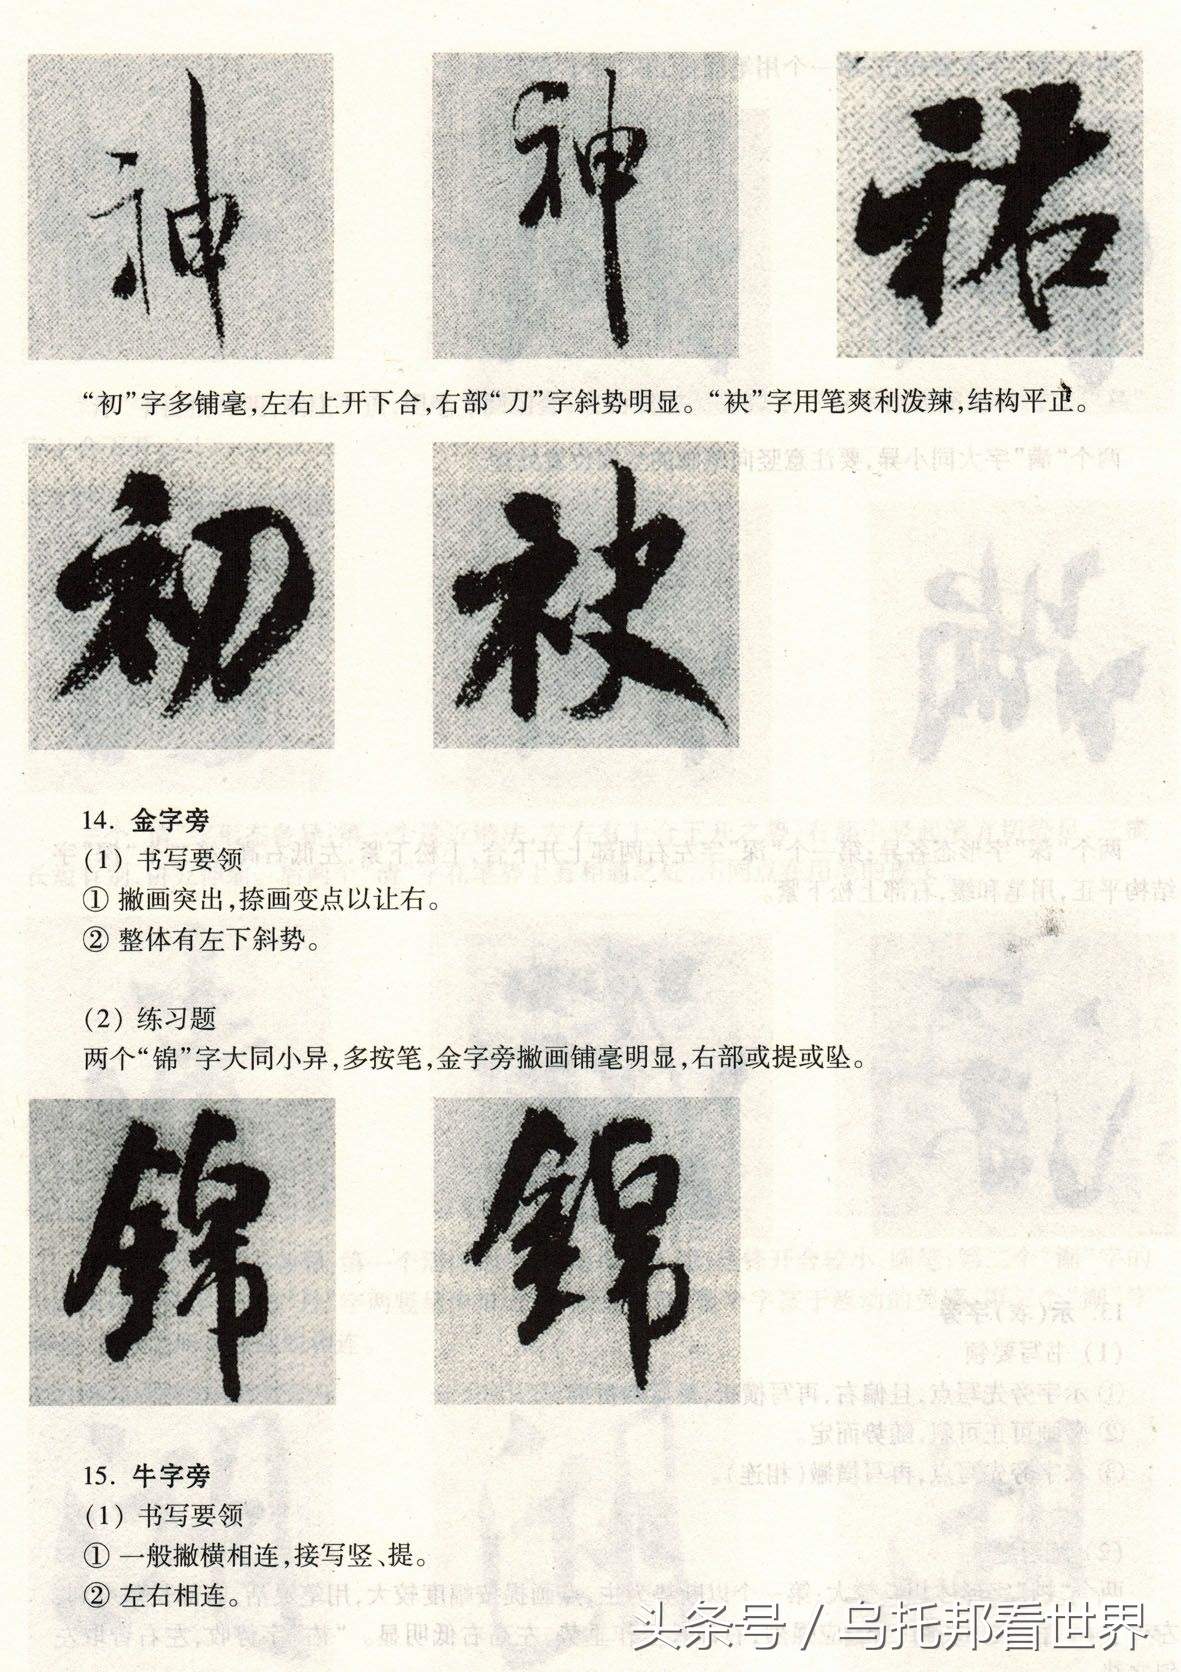 神 神 祐
“初”字多铺毫，左右上开下合，右部“刀”字斜势明显。“袂”字用笔爽利泼辣，结构平正。
初 袂
14. 金字旁
(1) 书写要领
① 撇画突出，捺画变点以让右。
② 整体有左下斜势。
(2) 练习题
两个“锦”字大同小异，多按笔，金字旁撇画铺毫明显，右部或提或坠。
錦 錦
15. 牛字旁
(1) 书写要领
① 一般撇横相连，接写竖、提。
② 左右相连。
头条号 / 乌托邦看世界